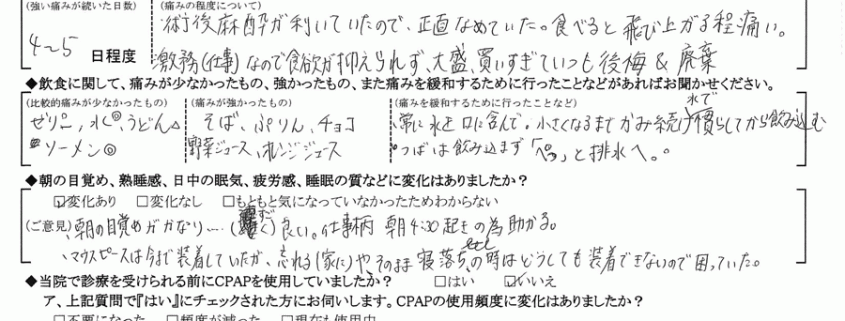 (強い痛みが続いた日数)
4〜5 日程度
(痛みの程度について)
術後麻酔が利いていたので、正直なめていた。食べると飛び上がる程痛い。
激務(仕事)なので食欲が抑えられず、大盛、買いすぎていつも後悔 & 廃棄
◆飲食に関して、痛みが少なかったもの、強かったもの、また痛みを緩和するために行ったことなどがあればお聞かせください。
(比較的痛みが少なかったもの)
ゼリー、水◎、うどん△
ソーメン◎
(痛みが強かったもの)
そば、ぷりん、チョコ
野菜ジュース、オレンジジュース
(痛みを緩和するために行ったことなど)
常に氷を口に含んで。小さくなるまでかみ続け水で慣らしてから飲み込む
つばは飲み込まず「ぺっ」と排水へ。
◆朝の目覚め、熟睡感、日中の眠気、疲労感、睡眠の質などに変化はありましたか?
☑変化あり □変化なし □もともと気になっていなかったためわからない
(ご意見)
、朝の目覚めがかなり…() 良い。仕事柄 朝4:30起きの為助かる。
、マウスピースは今まで装着していたが、忘れる(家に)や、そのまま寝落ちetcの時はどうしても装着できないので困っていた。
◆当院で診療を受けられる前にCPAPを使用していましたか? □はい ☑いいえ
ア、上記質問で『はい』にチェックされた方にお伺いします。CPAPの使用頻度に変化はありましたか?
□不要になった □頻度が減った □現在も使用中